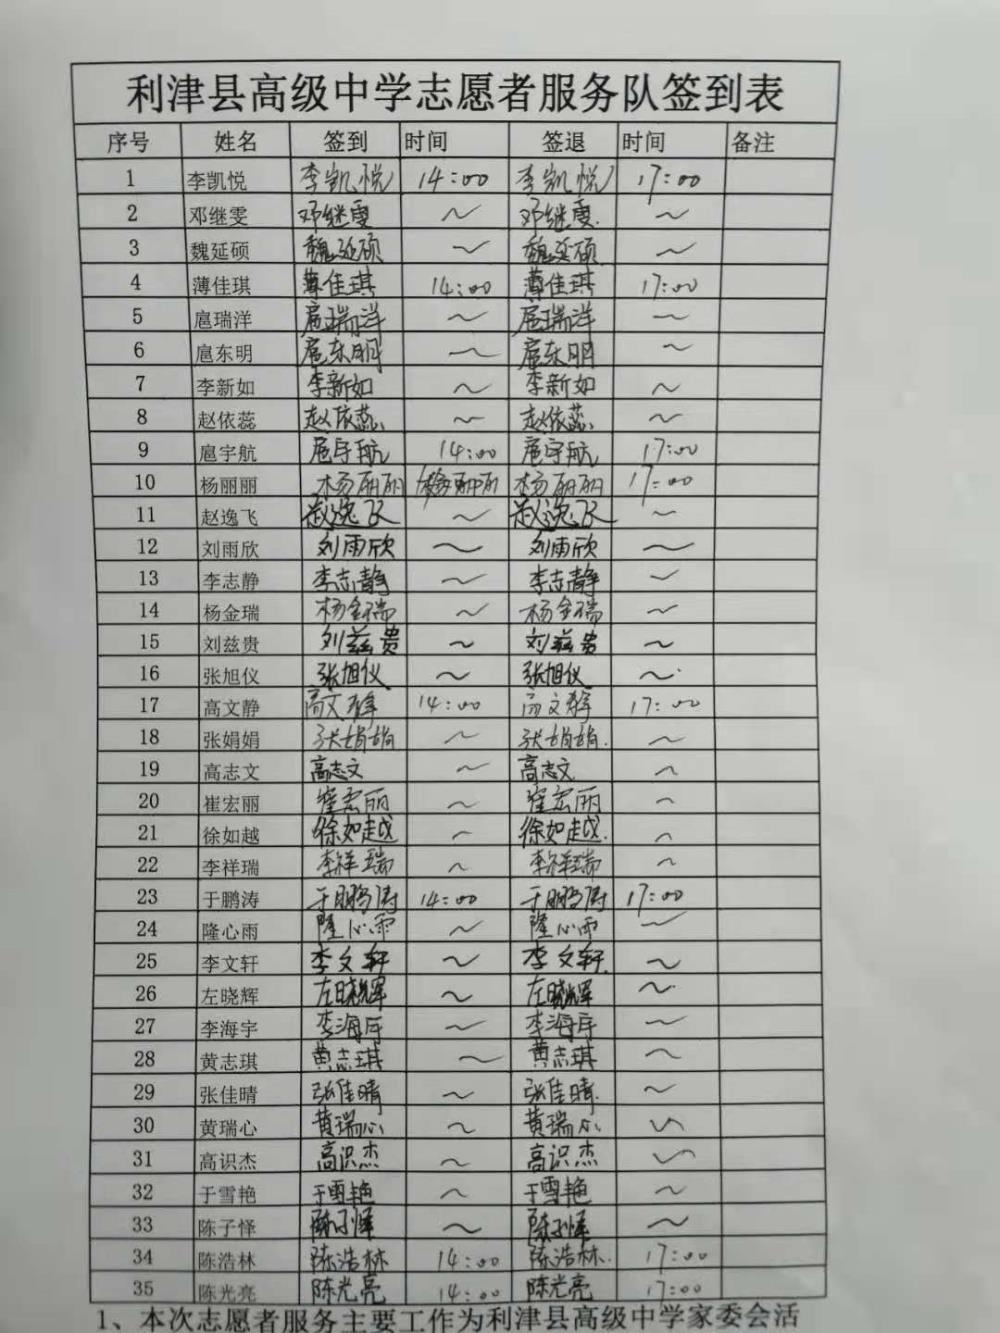 利津县高级中学志愿者服务队签到表
序号 姓名 签到 时间 签退 时间 备注
1 李凯悦 李凯悦 14:00 李凯悦 17:00
2 邓继雯 邓继雯 ~ 邓继雯. ~
3 魏延硕 魏延硕 ~ 魏延硕. ~
4 薄佳琪 薄佳琪 14:00 薄佳琪 17:00
5 扈瑞洋 扈瑞洋 ~ 扈瑞洋 ~
6 扈东明 扈东明 ~ 扈东明 ~
7 李新如 李新如 ~ 李新如 ~
8 赵依蕊 赵依蕊 ~ 赵依蕊 ~
9 扈宇航 扈宇航 14:00 扈宇航 17:00
10 杨丽丽 杨丽丽 杨丽丽 17:00
11 赵逸飞 赵逸飞 ~ 赵逸飞 ~
12 刘雨欣 刘雨欣 ~ 刘雨欣 ~
13 李志静 李志静 ~ 李志静 ~
14 杨金瑞 杨金瑞 ~ 杨金瑞 ~
15 刘兹贵 刘兹贵 ~ 刘兹贵 ~
16 张旭仪 张旭仪 ~ 张旭仪 ~
17 高文静 高文静 14:00 高文静 17:00
18 张娟娟 张娟娟 ~ 张娟娟. ~
19 高志文 高志文 ~ 高志文 ~
20 崔宏丽 崔宏丽 ~ 崔宏丽 ~
21 徐如越 徐如越 ~ 徐如越. ~
22 李祥瑞 李祥瑞 ~ 李祥瑞 ~
23 于鹏涛 于鹏涛 14:00 于鹏涛 17:00
24 隆心雨 隆心雨 ~ 隆心雨 ~
25 李文轩 李文轩 ~ 李文轩. ~
26 左晓辉 左晓辉 ~ 左晓辉 ~
27 李海宇 李海宇 ~ 李海宇 ~
28 黄志琪 黄志琪 ~ 黄志琪 ~
29 张佳晴 张佳晴 ~ 张佳晴. ~
30 黄瑞心 黄瑞心 ~ 黄瑞心 ~
31 高识杰 高识杰 ~ 高识杰 ~
32 于雪艳 于雪艳 ~ 于雪艳 ~
33 陈子怿 陈子怿 ~ 陈子怿 ~
34 陈浩林 陈浩林 14:00 陈浩林. 17:00
35 陈光亮 陈光亮 14:00 陈光亮 17:00
1、本次志愿者服务主要工作为利津县高级中学家委会活